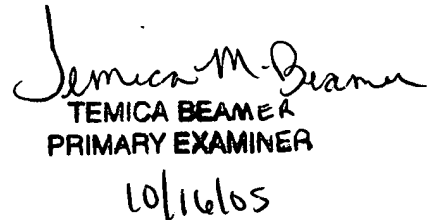 Temica M. Beamer
TEMICA BEAMER
PRIMARY EXAMINER
10/16/05